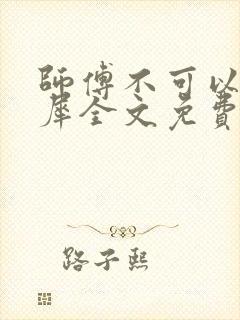 師傅不可以
犀全文免費
路子熙